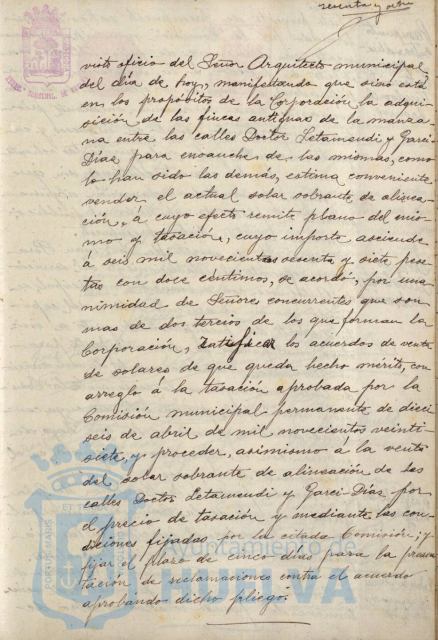 sesenta y ocho
visto oficio del Señor Arquitecto municipal,
del dia de hoy, manifestando que si no está
en los propósitos de la Corporación la adqui-
sición de las fincas antiguas de la manza-
na entre las calles Doctor Letamendi y Garci-
Díaz para ensanche de las mismas, como
lo han sido las demás, estima conveniente
vender el actual solar sobrante de alinea-
ción, á cuyo efecto remite plano del mis-
mo y tasación, cuyo importe asciende
á seis mil novecientas sesenta y siete pese-
tas con doce céntimos, se acordó, por una-
nimidad de Señores concurrentes que son
mas de dos tercios de los que forman la
Corporación, ratificar los acuerdos de venta
de solares de que queda hecho mérito, con
arreglo á la tasación aprobada por la
Comisión municipal permanente de dieci
seis de abril de mil novecientos veinti-
siete, y proceder, asimismo á la venta
del solar sobrante de alineación de las
calles Doctor Letamendi y Garci-Díaz por
el precio de tasación y mediante las con-
diciones fijadas por la citada Comisión; y
fijar el plazo de cinco dias para la presen
tación de reclamaciones contra el acuerdo
aprobando dicho pliego.
Ayuntamiento de
HUELVA